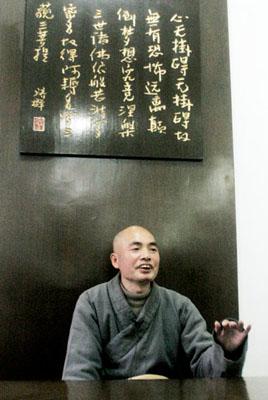 心无掛碍无掛碍故
無有恐怖远离颠
倒梦想究竟涅槃
三世诸佛依般若波罗
蜜多故得阿耨多罗三
藐三菩提